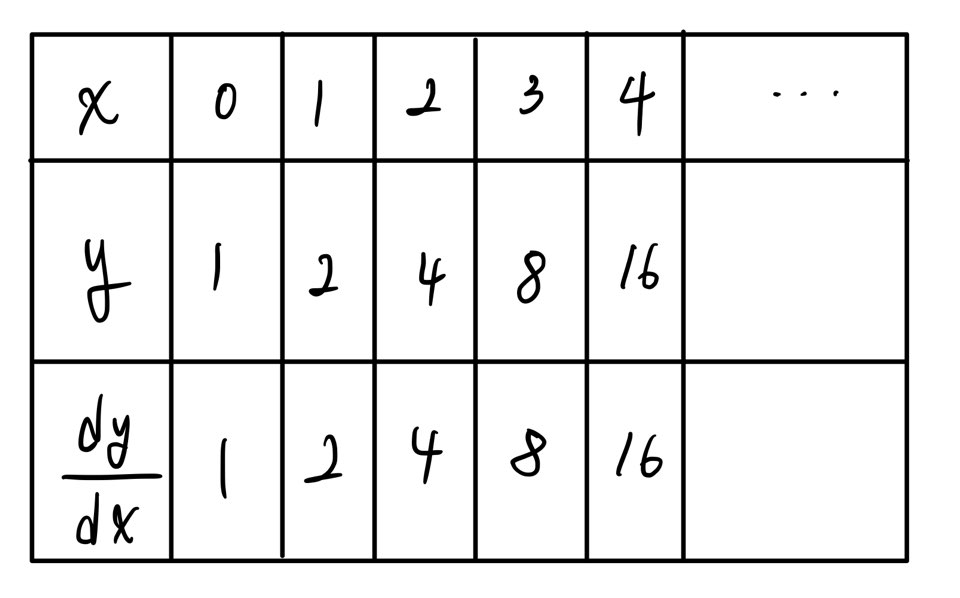 x 0 1 2 3 4 ...
y 1 2 4 8 16
dy/dx 1 2 4 8 16